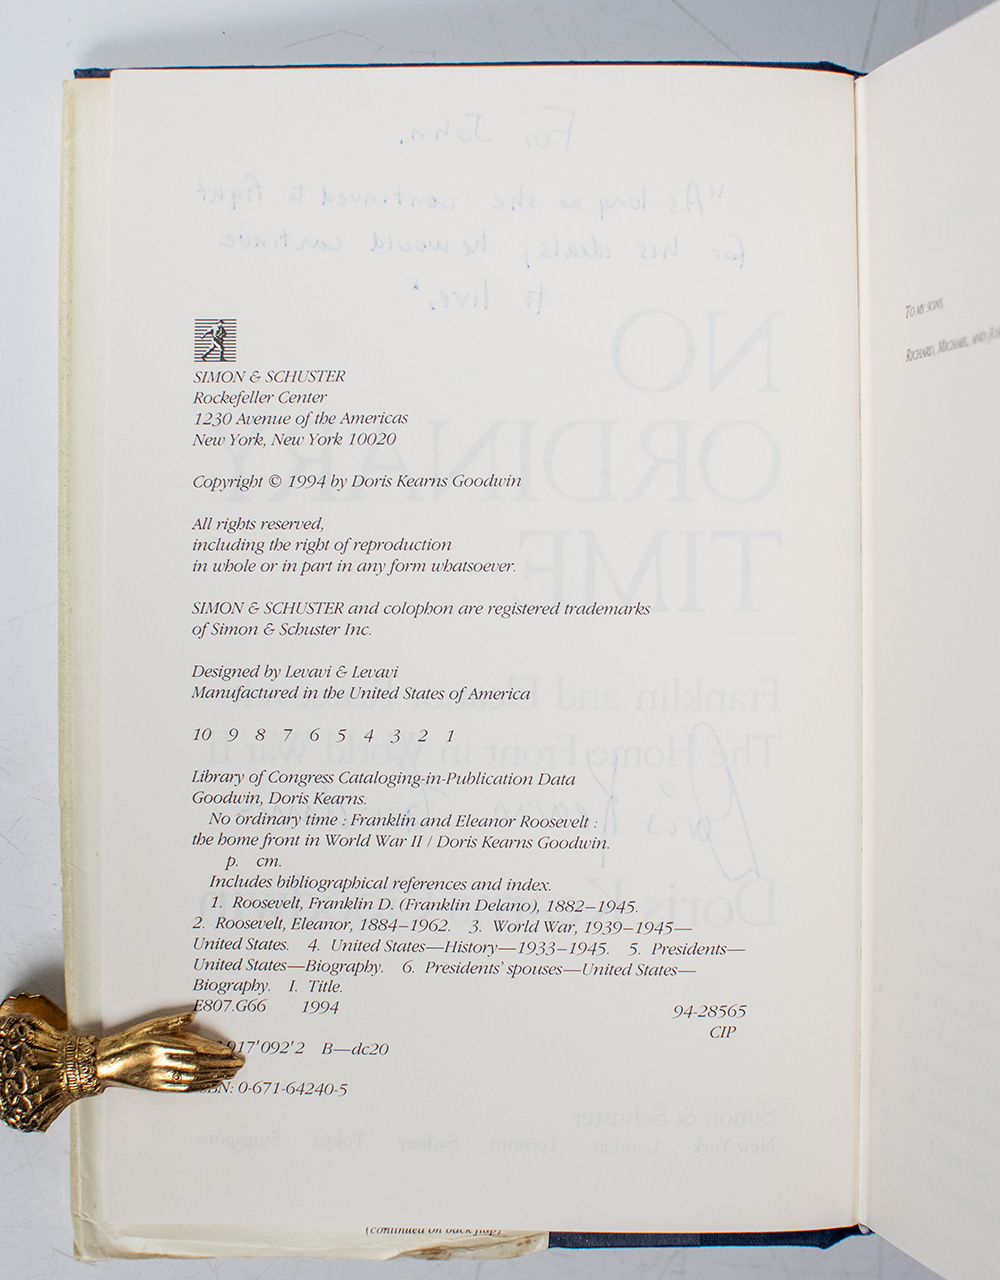 SIMON & SCHUSTER
Rockefeller Center
1230 Avenue of the Americas
New York, New York 10020
Copyright © 1994 by Doris Kearns Goodwin
All rights reserved,
including the right of reproduction
in whole or in part in any form whatsoever.
SIMON & SCHUSTER and colophon are registered trademarks
of Simon & Schuster Inc.
Designed by Levavi & Levavi
Manufactured in the United States of America
10 9 8 7 6 5 4 3 2 1
Library of Congress Cataloging-in-Publication Data
Goodwin, Doris Kearns.
No ordinary time : Franklin and Eleanor Roosevelt :
the home front in World War II / Doris Kearns Goodwin.
p. cm.
Includes bibliographical references and index.
1. Roosevelt, Franklin D. (Franklin Delano), 1882–1945.
2. Roosevelt, Eleanor, 1884–1962. 3. World War, 1939–1945—
United States. 4. United States—History—1933–1945. 5. Presidents—
United States—Biography. 6. Presidents' spouses—United States—
Biography. I. Title.
E807.G66 1994 94-28565
CIP
917'092'2 B—dc20
ISBN: 0-671-64240-5
(continued on back flap)
For John.
"As long as she continued to fight
for his ideals, he would continue
to live."
NO
ORDINARY
TIME
Franklin and Eleanor Roosevelt:
The Home Front in World War II
Doris Kearns Goodwin
Simon & Schuster
New York London Toronto Sydney Tokyo Singapore
To my sons,
Richard, Michael, and